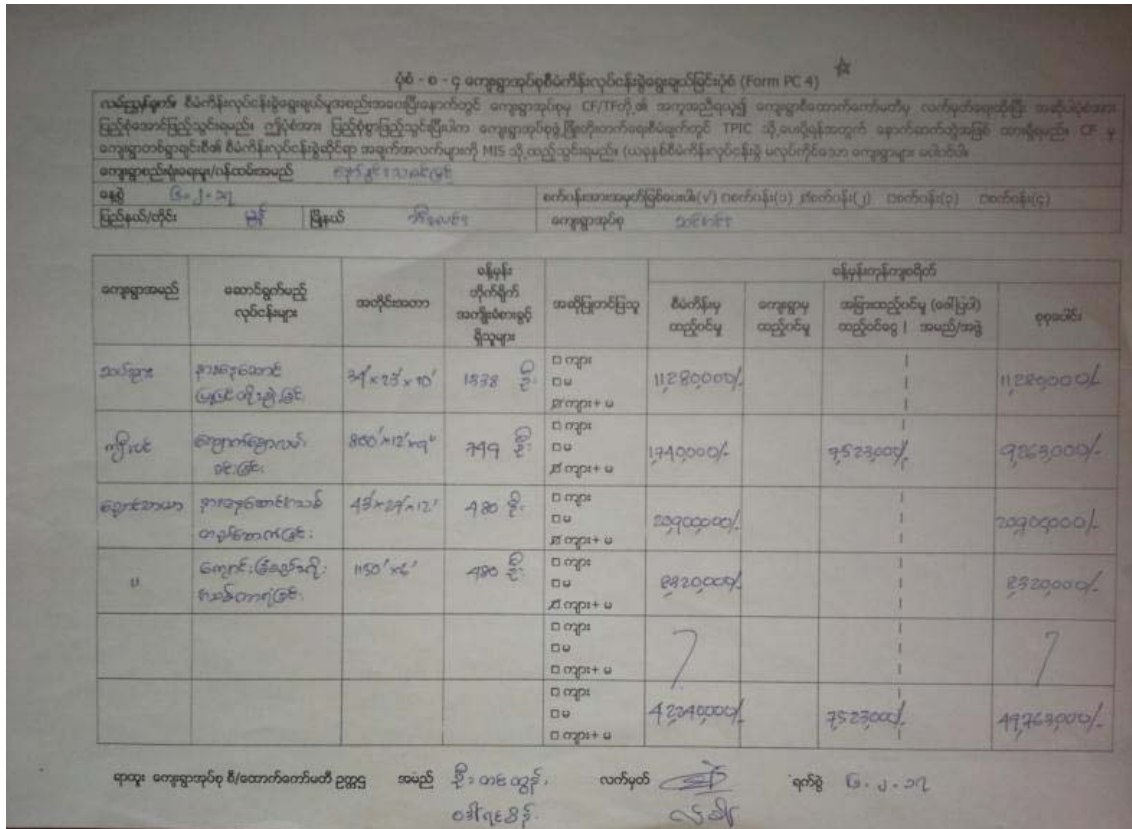 ပုံစံ - စ - ၄ ကျေးရွာအုပ်စုစီမံကိန်းလုပ်ငန်းခွဲရွေးချယ်ခြင်းပုံစံ (Form PC 4)
လမ်းညွှန်ချက်။ စီမံကိန်းလုပ်ငန်းခွဲရွေးချယ်မှုအစည်းအဝေးပြီးနောက်တွင် ကျေးရွာအုပ်စုမှ CF/TFတို့၏ အကူအညီရယူ၍ ကျေးရွာစီထောက်ကော်မတီမှ လက်မှတ်ရေးထိုးပြီး အဆိုပါပုံစံအား
ပြည့်စုံအောင်ဖြည့်သွင်းရမည်။ ဤပုံစံအား ပြည့်စုံစွာဖြည့်သွင်းပြီးပါက ကျေးရွာအုပ်စုဖွံ့ဖြိုးတိုးတက်ရေးစီမံချက်တွင် TPIC သို့ပေးပို့ရန်အတွက် နောက်ဆက်တွဲအဖြစ် ထားရှိရမည်။ CF မှ
ကျေးရွာတစ်ရွာချင်းစီ၏ စီမံကိန်းလုပ်ငန်းခွဲဆိုင်ရာ အချက်အလက်များကို MIS သို့ထည့်သွင်းရမည်။ (ယခုနှစ်စီမံကိန်းလုပ်ငန်းခွဲ မလုပ်ကိုင်သော ကျေးရွာများ မပါဝင်ပါ။
ကျေးရွာစည်းရုံးရေးမှူး/ဝန်ထမ်းအမည်
နေ့စွဲ ၆.၂.၁၇ စက်ဝန်းအားအမှတ်ခြစ်ပေးပါ။(√) □စက်ဝန်း(၁) ☑စက်ဝန်း(၂) □စက်ဝန်း(၃) □စက်ဝန်း(၄)
ပြည်နယ်/တိုင်း မွန် မြို့နယ် ဘီးလင်း ကျေးရွာအုပ်စု
ကျေးရွာအမည် ဆောင်ရွက်မည့် လုပ်ငန်းများ အတိုင်းအတာ ခန့်မှန်း တိုက်ရိုက် အကျိုးခံစားခွင့် ရှိသူများ အဆိုပြုတင်ပြသူ ခန့်မှန်းကုန်ကျစရိတ်
စီမံကိန်းမှ ထည့်ဝင်မှု ကျေးရွာမှ ထည့်ဝင်မှု အခြားထည့်ဝင်မှု (ဖော်ပြပါ) ထည့်ဝင်ငွေ | အမည်/အဖွဲ့ စုစုပေါင်း
စာသင်ဆောင် 34'x23'x10' 1338 ဦး □ ကျား □ မ ☑ ကျား+ မ 11,280,000/- 11,280,000/-
ကျောက်ချောလမ်း ခင်းခြင်း 800'x12'x9" 749 ဦး □ ကျား □ မ ☑ ကျား+ မ 1,740,000/- 7,523,000/- 9,263,000/-
43'x27'x12' 480 ဦး □ ကျား □ မ ☑ ကျား+ မ 20,900,000/- 20,900,000/-
" ကျောင်းခြံစည်းရိုး အသစ်ကာရံခြင်း 1150'x6' 480 ဦး □ ကျား □ မ ☑ ကျား+ မ 8,320,000/- 8,320,000/-
□ ကျား □ မ □ ကျား+ မ
□ ကျား □ မ □ ကျား+ မ 42,240,000/- 7,523,000/- 49,763,000/-
ရာထူး ကျေးရွာအုပ်စု စီ/ထောက်ကော်မတီ ဥက္ကဋ္ဌ အမည် ဦးတင်ထွန်း လက်မှတ် ရက်စွဲ ၆.၂.၁၇